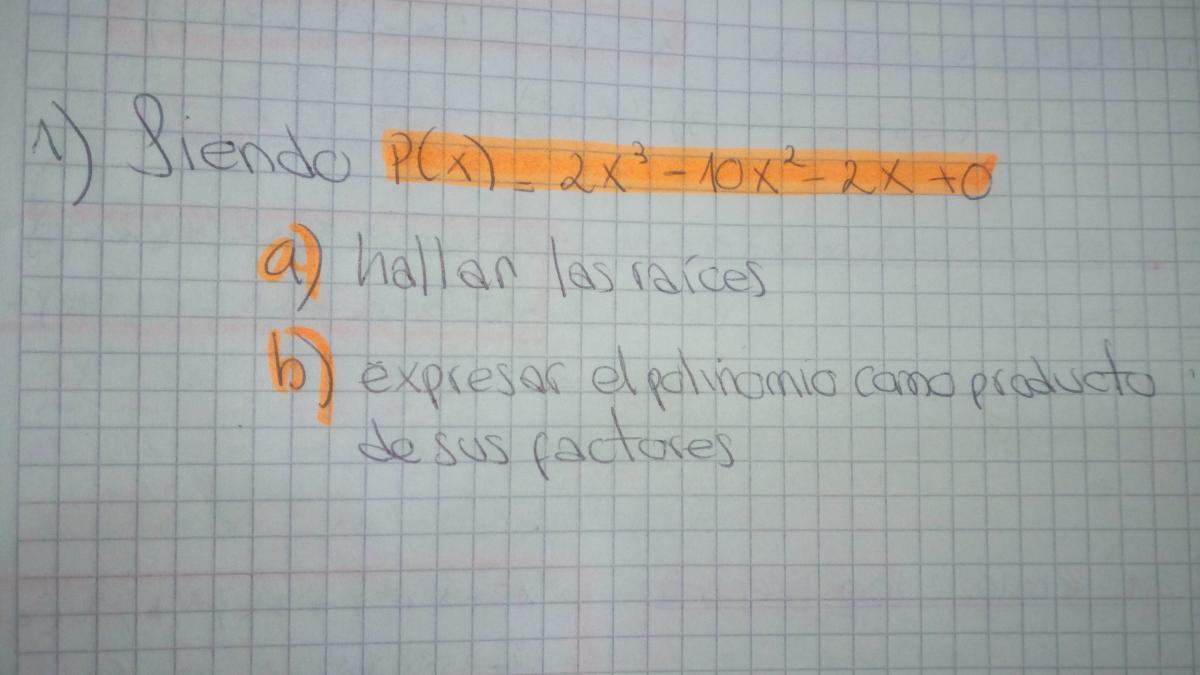 1) Siendo P(x) = 2x³ - 10x² - 2x + 0
a) hallar las raíces
b) expresar el polinomio como producto
de sus factores